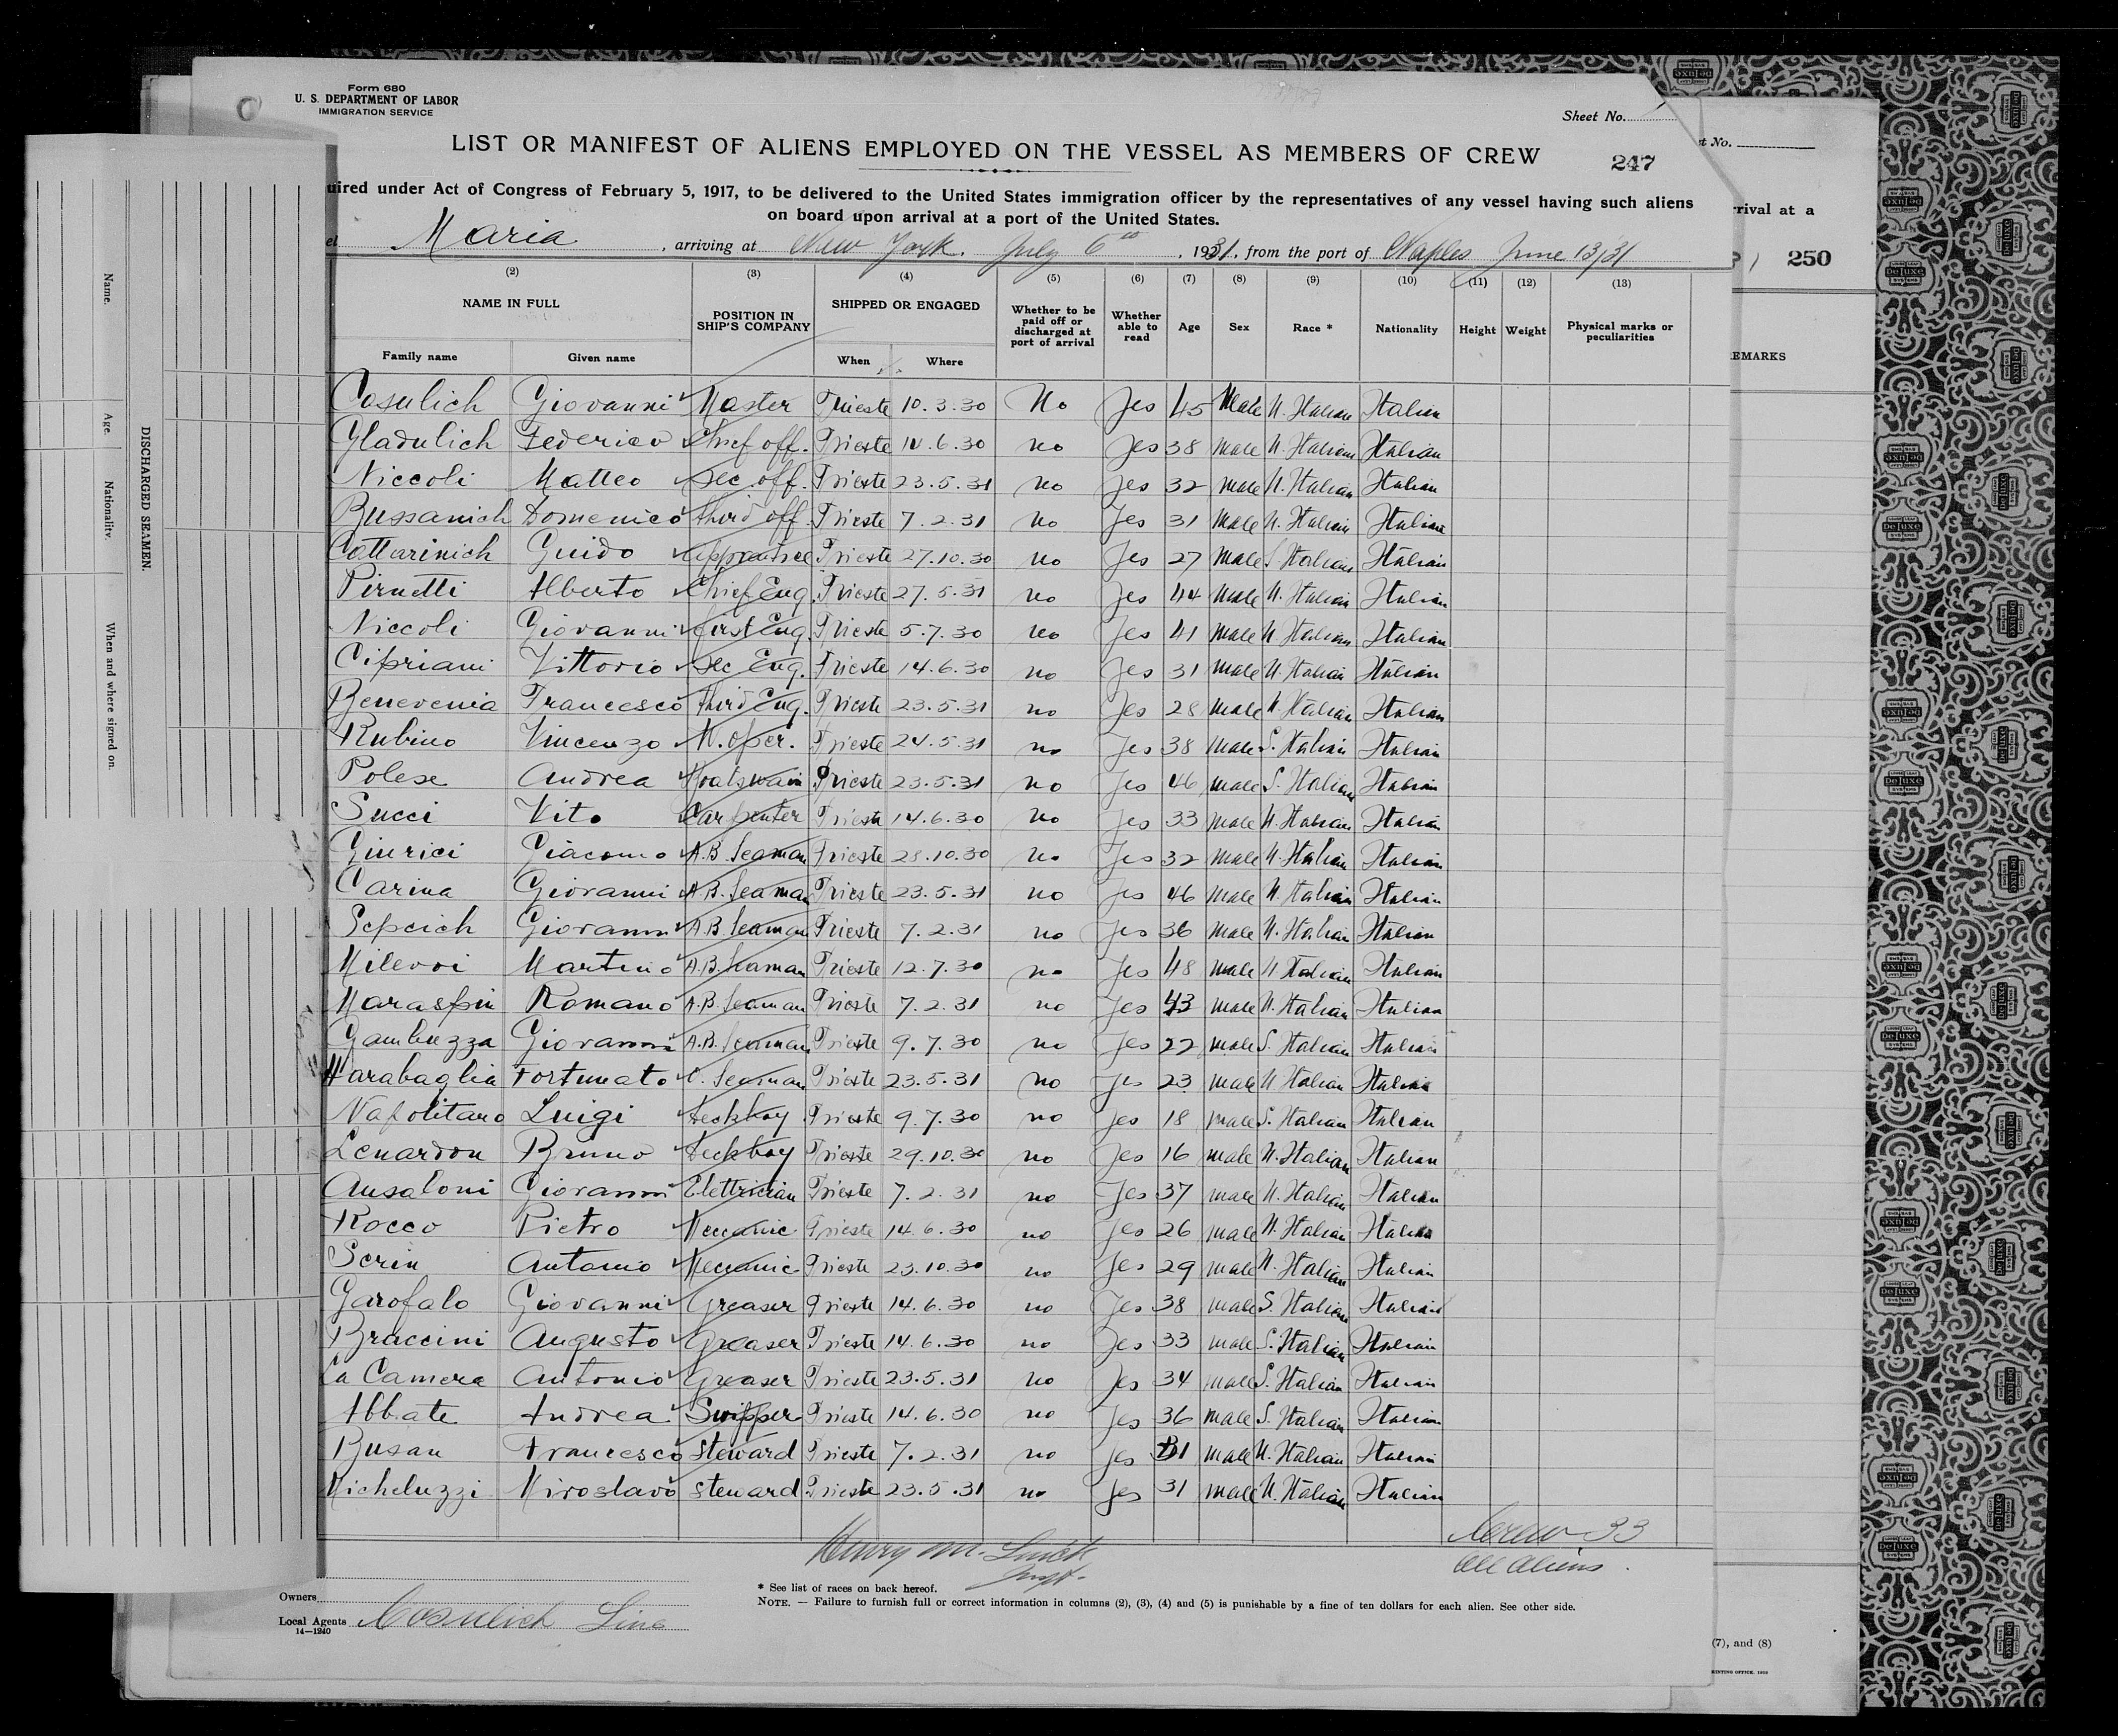 Form 680
U. S. DEPARTMENT OF LABOR
IMMIGRATION SERVICE
Sheet No.
LIST OR MANIFEST OF ALIENS EMPLOYED ON THE VESSEL AS MEMBERS OF CREW
247
uired under Act of Congress of February 5, 1917, to be delivered to the United States immigration officer by the representatives of any vessel having such aliens
on board upon arrival at a port of the United States.
el Maria, arriving at New York. July 6th, 1931, from the port of Naples June 13/31
(2) (3) (4) (5) (6) (7) (8) (9) (10) (11) (12) (13)
NAME IN FULL POSITION IN SHIP'S COMPANY SHIPPED OR ENGAGED Whether to be paid off or discharged at port of arrival Whether able to read Age Sex Race * Nationality Height Weight Physical marks or peculiarities
Family name Given name When Where
Cosulich Giovanni Master Trieste 10.3.30 No Yes 45 Male N. Italian Italian
Gladulich Federico Chief off. Trieste 14.6.30 no Yes 38 male N. Italian Italian
Niccoli Matteo Sec. off. Trieste 23.5.31 no Yes 32 male N. Italian Italian
Bussanich Domenico third off. Trieste 7.2.31 no Yes 31 male N. Italian Italian
Cattarinich Guido apprentice Trieste 27.10.30 no Yes 27 male S. Italian Italian
Pirnetti Alberto Chief Eng. Trieste 27.5.31 no Yes 44 male N. Italian Italian
Niccoli Giovanni first Eng. Trieste 5.7.30 no Yes 41 male N. Italian Italian
Cipriani Vittorio Sec. Eng. Trieste 14.6.30 no Yes 31 male N. Italian Italian
Benevenia Francesco third Eng. Trieste 23.5.31 no Yes 28 male N. Italian Italian
Rubino Vincenzo W. oper. Trieste 24.5.31 no Yes 38 male S. Italian Italian
Polese Andrea Boatswain Trieste 23.5.31 no Yes 46 male S. Italian Italian
Succi Vito Carpenter Trieste 14.6.30 no Yes 33 male N. Italian Italian
Giurici Giacomo A.B. Seaman Trieste 28.10.30 no Yes 32 male N. Italian Italian
Carina Giovanni A.B. Seaman Trieste 23.5.31 no Yes 46 male N. Italian Italian
Scpcich Giovanni A.B. Seaman Trieste 7.2.31 no Yes 36 male N. Italian Italian
Milevoi Martino A.B. Seaman Trieste 12.7.30 no Yes 48 male N. Italian Italian
Maraspin Romano A.B. Seaman Trieste 7.2.31 no Yes 43 male N. Italian Italian
Gambuzza Giovanni A.B. Seaman Trieste 9.7.30 no Yes 22 male S. Italian Italian
Harabaglia Fortunato O. Seaman Trieste 23.5.31 no Yes 23 male N. Italian Italian
Napolitano Luigi deckboy Trieste 9.7.30 no Yes 18 male S. Italian Italian
Lenardon Bruno deckboy Trieste 29.10.30 no Yes 16 male N. Italian Italian
Ansaloni Giovanni Elettrician Trieste 7.2.31 no Yes 37 male N. Italian Italian
Rocco Pietro Meccanic Trieste 14.6.30 no Yes 26 male N. Italian Italian
Scrin Antonio Meccanic Trieste 23.10.30 no Yes 29 male N. Italian Italian
Garofalo Giovanni Greaser Trieste 14.6.30 no Yes 38 male S. Italian Italian
Braccini Augusto Greaser Trieste 14.6.30 no Yes 33 male S. Italian Italian
La Camera Antonio Greaser Trieste 23.5.31 no Yes 34 male S. Italian Italian
Abbate Andrea Swipper Trieste 14.6.30 no Yes 36 male S. Italian Italian
Busan Francesco Steward Trieste 7.2.31 no Yes 31 male N. Italian Italian
Micheluzzi Miroslavo Steward Trieste 23.5.31 no Yes 31 male N. Italian Italian
Crew 33
All Aliens.
Henry M.
Owners
Local Agents Cosulich Line
14—1240
* See list of races on back hereof.
NOTE. — Failure to furnish full or correct information in columns (2), (3), (4) and (5) is punishable by a fine of ten dollars for each alien. See other side.
DISCHARGED SEAMEN.
Name. Age. Nationality. When and where signed on.
t No.
rrival at a
250
EMARKS
(7), and (8)